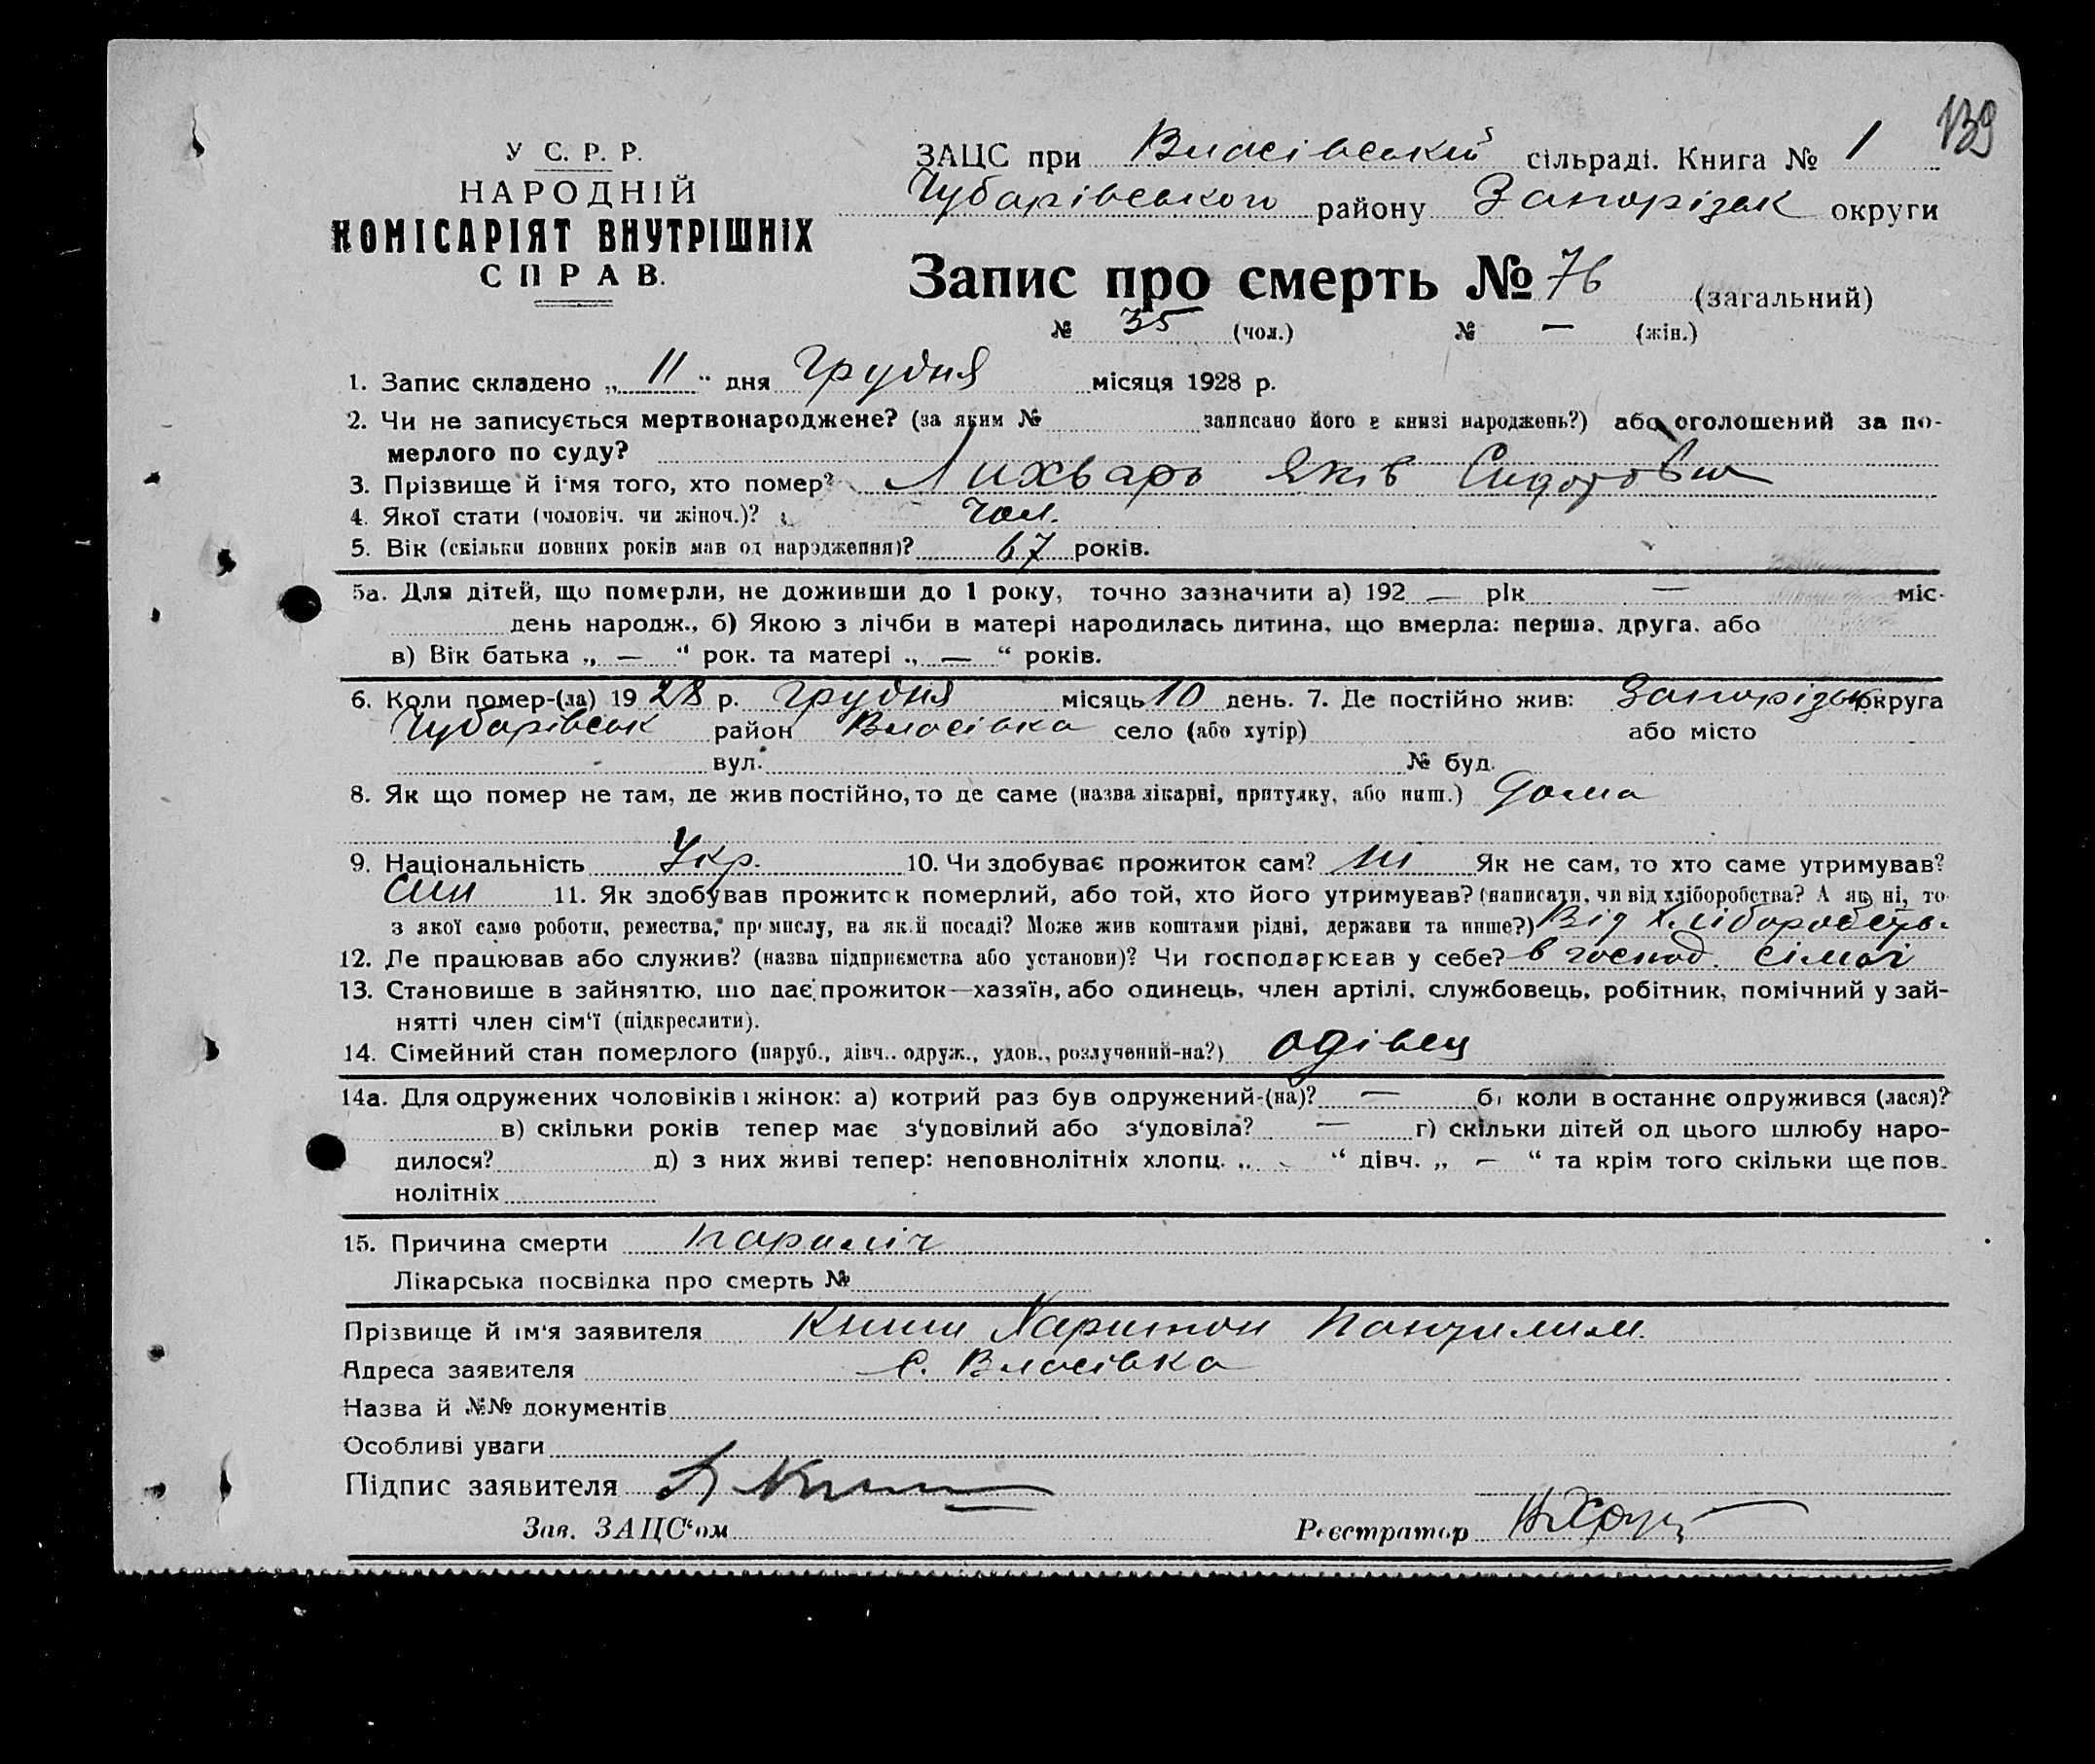 139
У С. Р. Р.
НАРОДНІЙ
КОМІСАРІЯТ ВНУТРІШНІХ
СПРАВ.
ЗАЦС при Власівській сільраді. Книга № 1
Чубарівського району Запорізьк округи
Запис про смерть № 76 (загальний)
№ 35 (чол.) № — (жін.)
1. Запис складено „ 11 “ дня Грудня місяця 1928 р.
2. Чи не записується мертвонароджене? (за яким № записано його в книзі народжень?) або оголошений за по-
мерлого по суду?
3. Прізвище й ім'я того, хто помер? Лихварь Яків Сидорович
4. Якої стати (чоловіч. чи жіноч.)? Чол.
5. Вік (скільки повних років мав од народження)? 67 років.
5а. Для дітей, що померли, не доживши до 1 року, точно зазначити а) 192 — рік — міс.
день народж., б) Якою з лічби в матері народилась дитина, що вмерла: перша, друга, або
в) Вік батька „ — “ рок. та матері „ — “ років.
6. Коли помер-(ла) 1928 р. Грудня місяць 10 день. 7. Де постійно жив: Запорізьк округа
Чубарівськ район Власівка село (або хутір) або місто
вул. № буд.
8. Як що помер не там, де жив постійно, то де саме (назва лікарні, притулку, або инш.) Дома
9. Національність Укр. 10. Чи здобуває прожиток сам? ні Як не сам, то хто саме утримував?
син 11. Як здобував прожиток померлий, або той, хто його утримував? (написати, чи від хліборобства? А як ні, то
з якої само роботи, ремества, промислу, на якій посаді? Може жив коштами рідні, держави та инше?) Від хліборобств.
12. Де працював або служив? (назва підприємства або установи)? Чи господарював у себе? в господ. сімьї
13. Становище в зайняттю, що дає прожиток—хазяїн, або одинець, член артілі, службовець, робітник, помічний у зай-
нятті член сім'ї (підкреслити).
14. Сімейний стан померлого (паруб., дівч.. одруж., удов., розлучений-на?) одівец
14а. Для одружених чоловіків і жінок: а) котрий раз був одружений-(на)? — б) коли в останнє одружився (лася)?
в) скільки років тепер має з‘удовілий або з‘удовіла? — г) скільки дітей од цього шлюбу наро-
дилося? д) з них живі тепер: неповнолітніх хлопц. „ - “ дівч. „ — “ та крім того скільки ще пов-
нолітніх
15. Причина смерти параліч
Лікарська посвідка про смерть №
Прізвище й ім‘я заявителя Книш Харитон
Адреса заявителя с. Власівка
Назва й №№ документів
Особливі уваги
Підпис заявителя
Зав. ЗАЦС‘ом Реєстратор